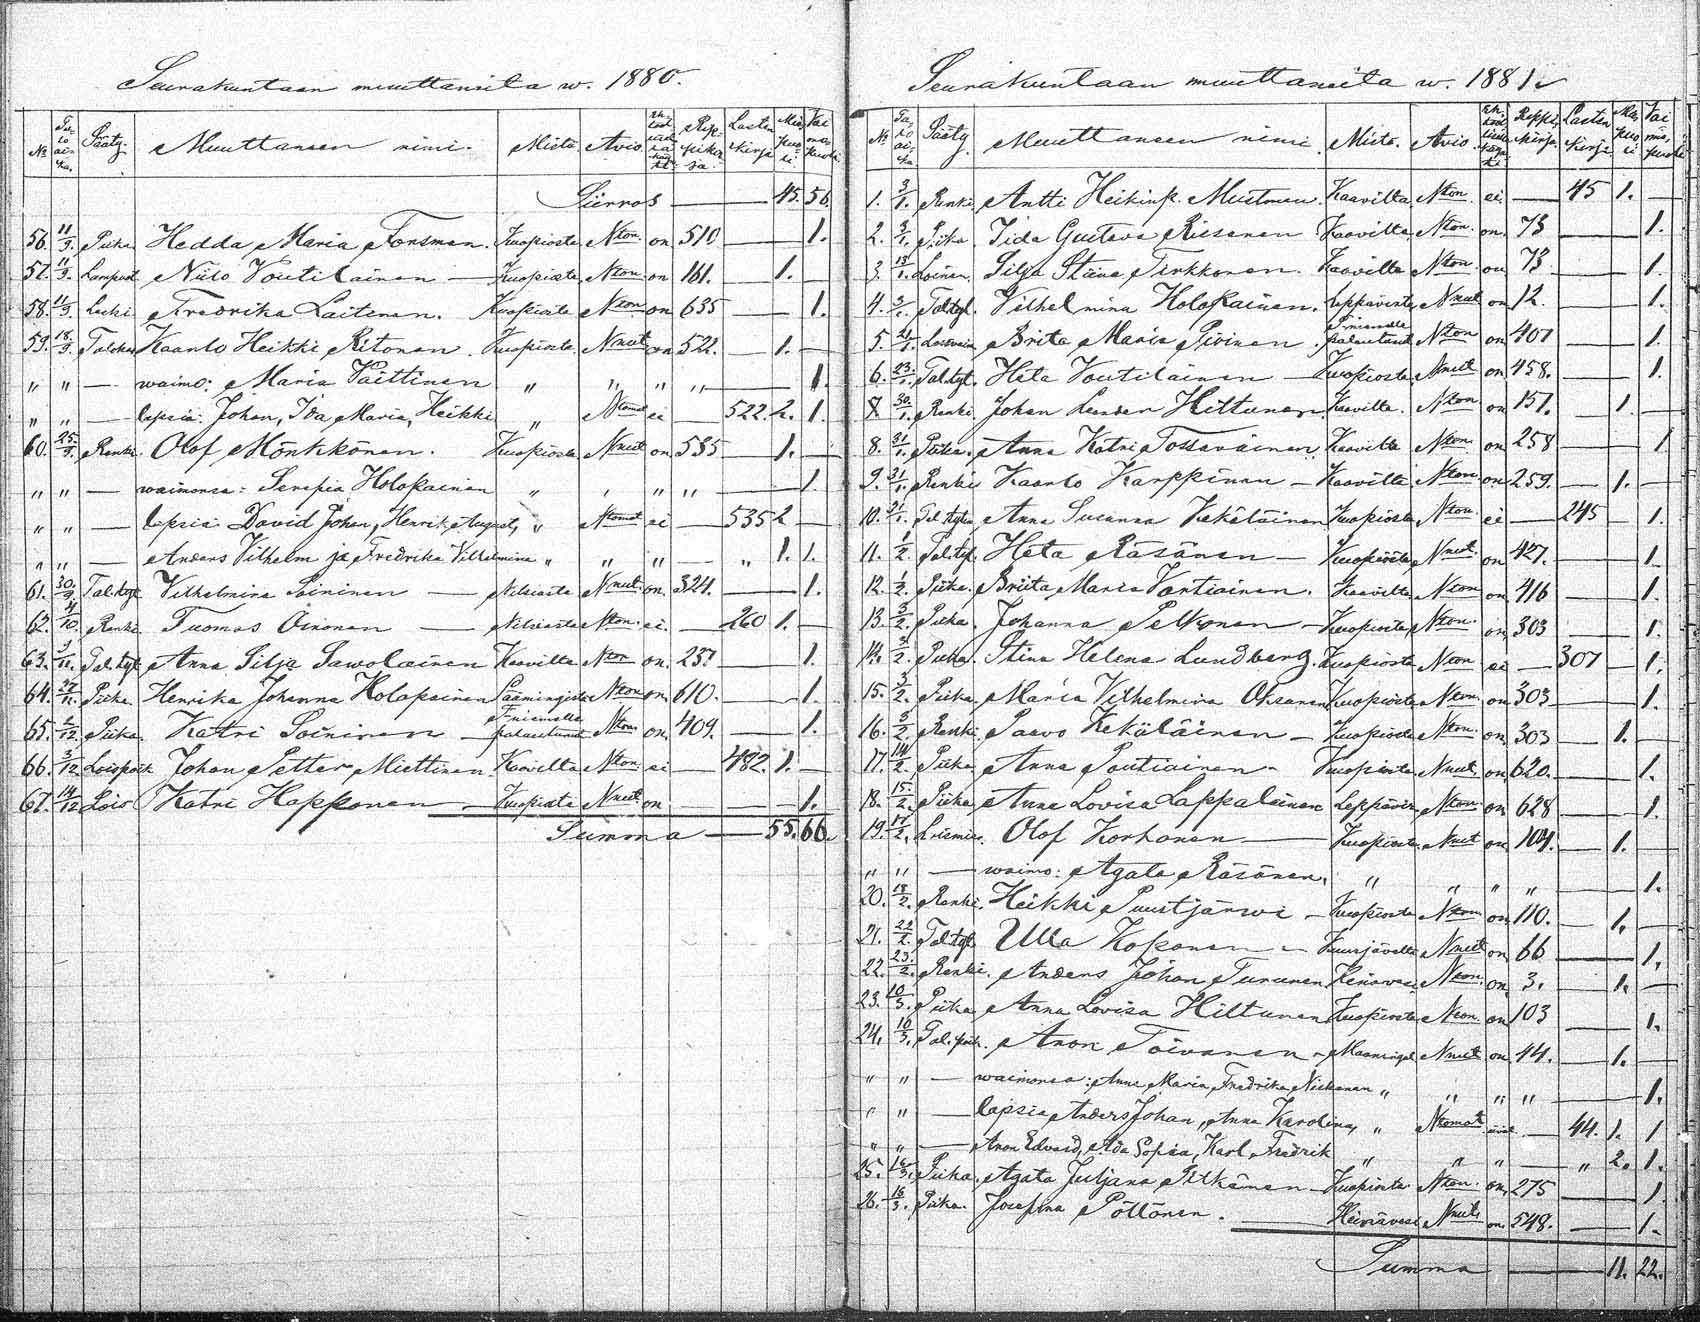 Seurakuntaan muuttaneita w. 1880.
No Tuloaika. Sääty. Muuttaneen nimi. Mistä. Avio. Rippikirja. Lasten kirja Miespuoli Vaimopuoli
Siirros — 45. 56.
56. 11/9. Piika Hedda Maria Forsman. Kuopiosta Nton on 510 — 1.
57. 11/9. Niilo Voutilainen — Kuopiosta Nton on 161. — 1. —
58. 11/9. Fredrika Laitinen. Kuopiosta Nton on 635 — 1.
59. 18/9. Kaarlo Heikki Ritonen. Kuopiosta Nnut on 522. — 1. —
" " — waimo: Maria Väittinen " " " " — 1.
" " — lapsia: Johan, Ida Maria, Heikki " Ntomat ei 522. 2. 1.
60. 25/9. Renki. Olof Mönkkönen. Kuopiosta Nnut on 535 — 1. —
" " — waimonsa: Serafia Holopainen " " " " — 1.
" " — lapsia David Johan, Henrik August, " Ntomat ei — 535 2 —
" " — Anders Vilhelm ja Fredrika Vilhelmina " " " " 1. 1.
61. 30/9. Tal.tyt. Vilhelmina Soininen — Nilsiästä Nnut on. 324. — 1.
62. 4/10. Renki Tuomas Oinonen — Nilsiästä Nton. ei. — 260 1. —
63. Tal.tyt. Anna Silja Sawolainen Kaavilta Nton on. 237 — 1.
64. Piika Henrika Johanna Holopainen Säämingistä Nton on 610. — 1.
65. 2/12. Piika Katri Soininen — palautunut Nton. on. 409. — 1.
66. 3/12 Johan Petter Miettinen Kaavilta Nton. ei — 482. 1. —
67. 14/12 Lois Katri Happonen — Kuopiosta Nnut on — 1.
Summa — 55. 66.
Seurakuntaan muuttaneita w. 1881.
No Tuloaika. Sääty. Muuttaneen nimi. Mistä. Avio. Rippikirja. Lasten kirja Miespuoli Vaimopuoli
1. 3/1. Renki. Antti Heikinp. Mustonen. Kaavilta Nton. ei — 45 1. —
2. 3/1. Piika. Iida Gustava Riisanen Kaavilta Nton. on. 73 — 1.
3. 13/1. Loinen. Silja Stiina Tirkkonen. Kaavilta Nton. on 73 — 1.
4. Tal.tyt. Vilhelmina Holopainen. Leppävirta Nnut on 12. — 1.
5. Brita Maria Piirinen. palautunut Nton on 407 — 1.
6. 23/1. Tal.tyt. Heta Voutilainen — Kuopiosta Nnut on 458. — 1.
7. 30/1. Renki Johan Leander Hiltunen. Kaavilta. Nton on 157. — 1. —
8. 31/1. Piika. Anna Katri Tossavainen Kaavilta Nton. on 258 — 1
9. 31/1. Renki Kaarlo Karppinen — Kaavilta Nton on 259. — 1. —
10. Anna Susanna Kekäläinen Kuopiosta Nton. ei — 245 — 1.
11. 1/2. Tal.tyt. Heta Räsänen — Kuopiosta Nnut. on 427. — 1.
12. 1/2. Piika. Briita Maria Vartiainen. Kaavilta. Nton on 416 — 1.
13. 3/2. Piika. Johanna Pelkonen — Kuopiosta Nton. on 303 — 1.
14. Piika. Stina Helena Lundberg. Kuopiosta Nton ei — 307 — 1.
15. 3/2. Piika. Maria Vilhelmina Oksanen Kuopiosta Nton. on 303 — 1.
16. 3/2. Renki. Paavo Kekäläinen — Kuopiosta Nton. on. 303 — 1. —
17. 14/2. Piika. Anna Poutiainen — Kuopiosta Nnut. on 620. — 1.
18. 15/2. Piika Anna Lovisa Lappalainen Leppävir. Nton. on 628 — 1.
19. 17/2. Olof Korhonen — Kuopiosta. Nnut on. 104. — 1. —
" " — waimo: Agata Räsänen, " " " " — 1.
20. 18/2. Renki. Heikki Puustjärwi — Kuopiosta Nton on 110. — 1. —
21. 22/2. Tal.tyt. Ulla Koponen — Kuusjärvelta Nnut on 66 — 1.
22. 23/2. Renki. Anders Johan Turunen Heinävesi. Nton. on. 3. — 1. —
23. 10/3. Piika Anna Lovisa Hiltunen Kuopiosta Nton. on 103 — 1.
24. 10/3. Tal.poik. Aron Toivanen — Maaningal Nnut on 44. — 1. —
" " — waimonsa: Anna Maria Fredrika Niskanen " " " " — 1.
" " — lapsia Anders Johan, Anna Karolina, " Ntomat — 44. 1. 1
" " — Aron Edvard, Ada Sofia, Karl Fredrik " " " — " 2. 1.
25. 16/3. Piika. Agata Juljana Pitkänen — Kuopiosta Nton. on. 275 — 1.
26. 16/3. Piika. Josefina Pöllönen. — Heinävesi Nnut. on. 548. — 1.
Summa — 11. 22.